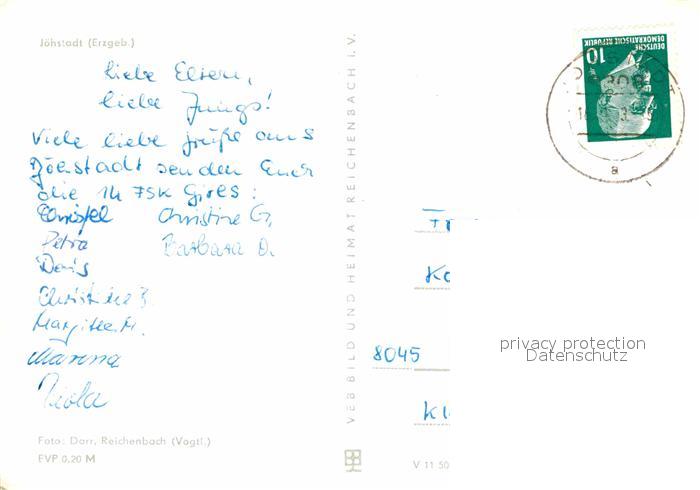 Jöhstadt (Erzgeb.)
Liebe Eltern,
liebe Jungs!
Viele liebe Grüße aus
Jöhstadt senden Euch
die 14 FSK Girls:
Christel Christine G.
Petra Barbara D.
Doris
Christine Z
Margitta M.
Marina
Viola
Foto: Darr, Reichenbach (Vogtl.)
EVP 0,20 M
VEB BILD UND HEIMAT REICHENBACH I. V.
V 11 50
DEUTSCHE
DEMOKRATISCHE REPUBLIK
10
a
Ko
8045
Kl
privacy protection
Datenschutz